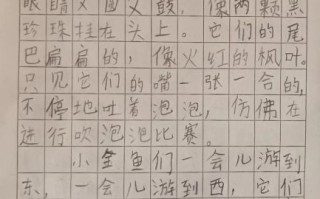 眼睛又圆又鼓，像两颗黑
珍珠挂在头上。它们的尾
巴扁扁的，像火红的枫叶。
只见它们的嘴一张一合的，
不停地吐着泡泡，仿佛在
进行吹泡泡比赛。
小金鱼们一会儿游到
东，一会儿游到西，它们